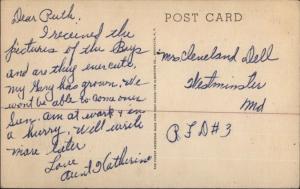 Dear Ruth.
I received the
pictures of the Boys
and are they ever cute,
my Gary has grown. We
won't be able to come over
Sun. am at work & in
a hurry. Will write
more later
Love
Aunt Katherine
POST CARD
Mrs Cleveland Dell
Westminster
Md
R F D # 3